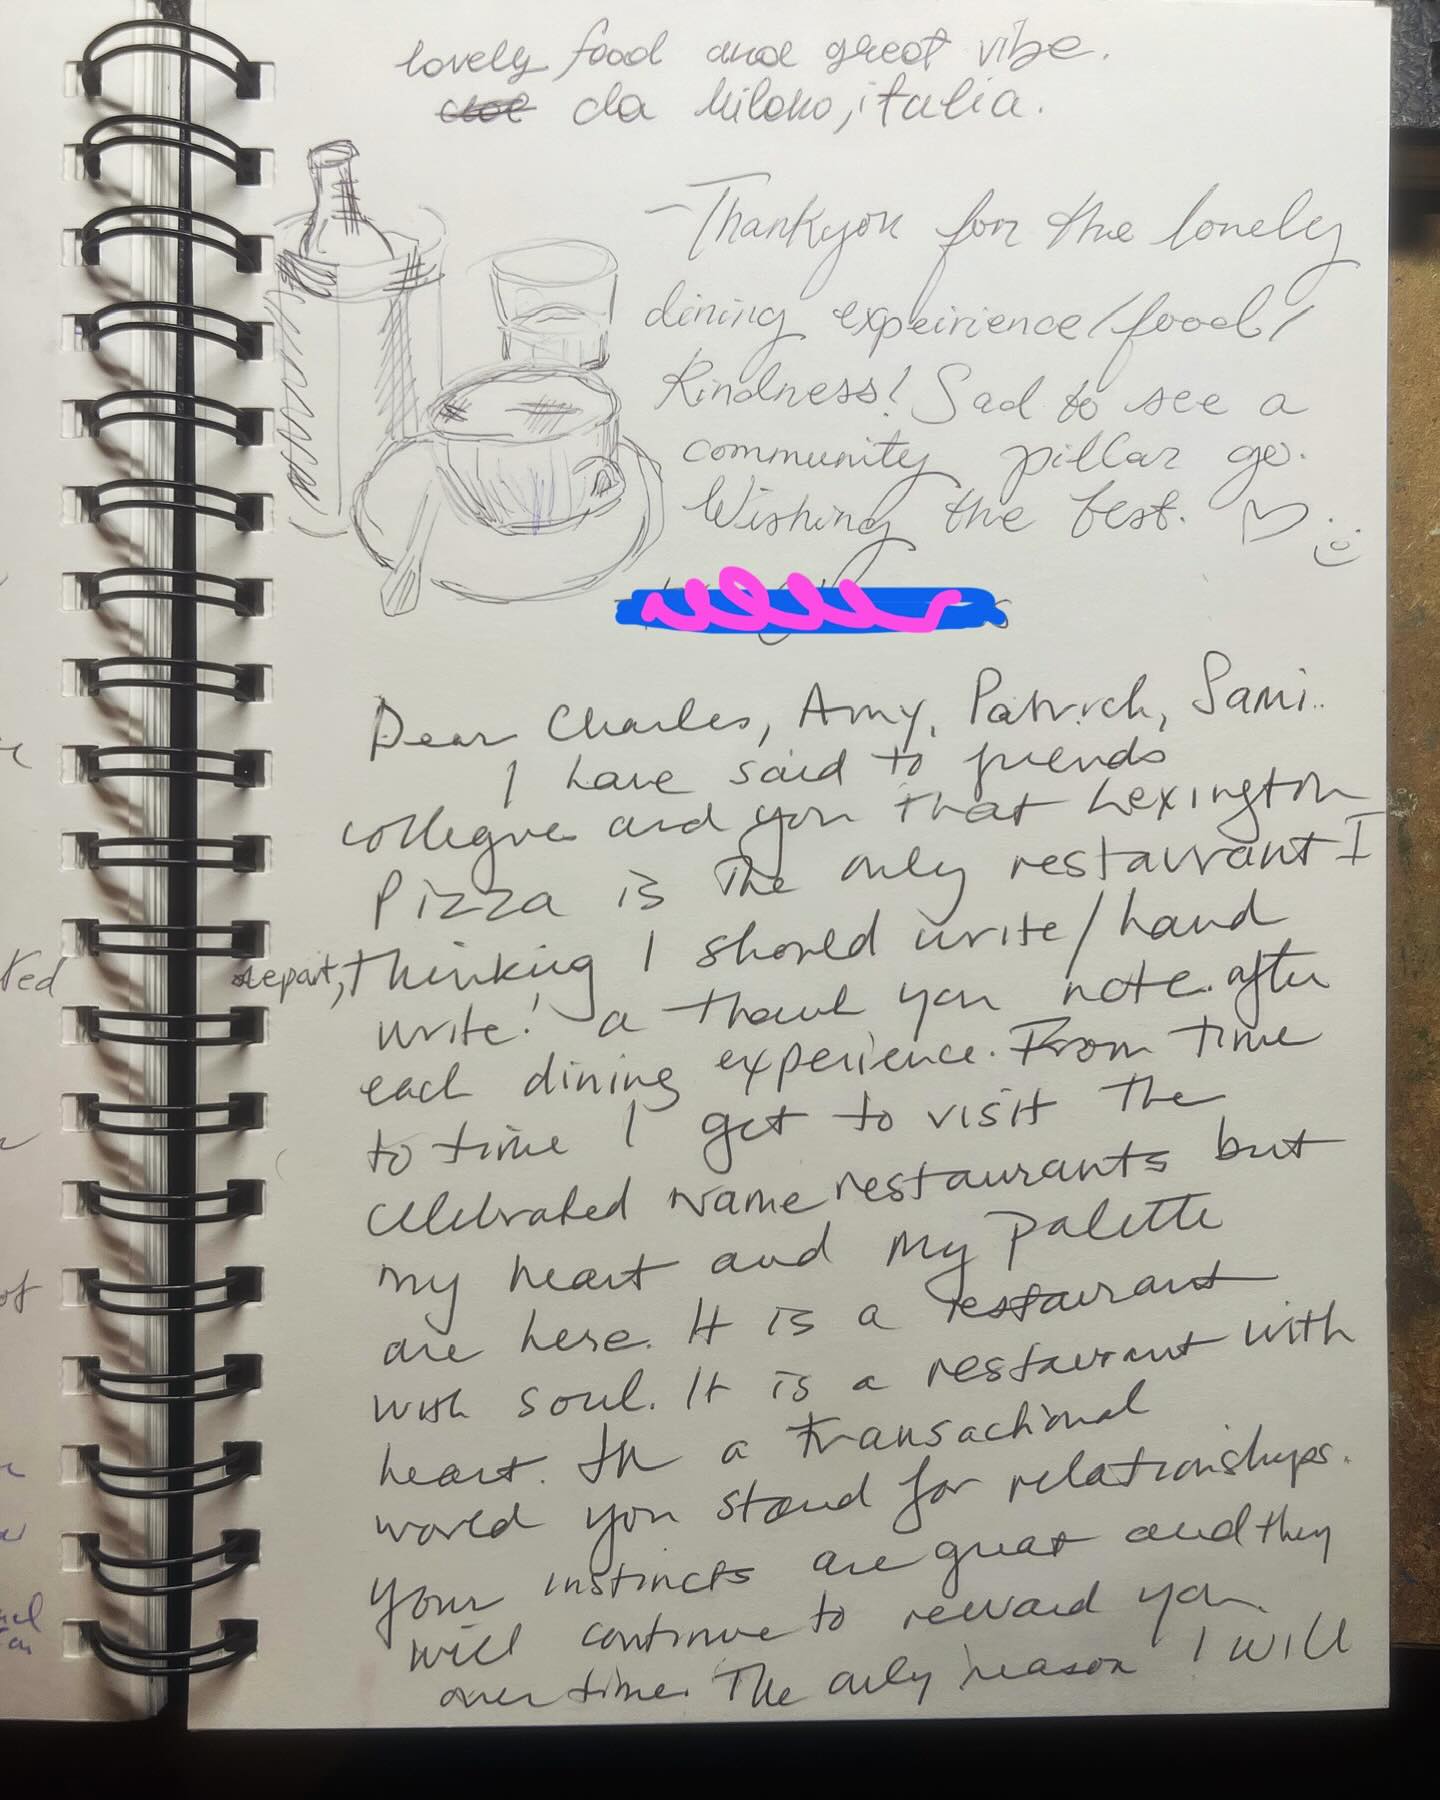 lovely food and great vibe.
da Milano, italia.
Thankyou for the lovely
dining expeirience/food/
Kindness! Sad to see a
community pillar go.
Wishing the best.
Dear Charles, Amy, Patrick, Sami..
I have said to friends
collegue and you that Lexington
Pizza is The only restaurant I
depart, thinking I should write/hand
write! a thank you note after
each dining experience. From time
to time I get to visit the
celebrated name restaurants but
my heart and my palette
are here. It is a restaurant
with soul. It is a restaurant with
heart. In a transactional
world you stand for relationships.
Your instincts are great and they
will continue to reward you
over time. The only reason I will
ted
of